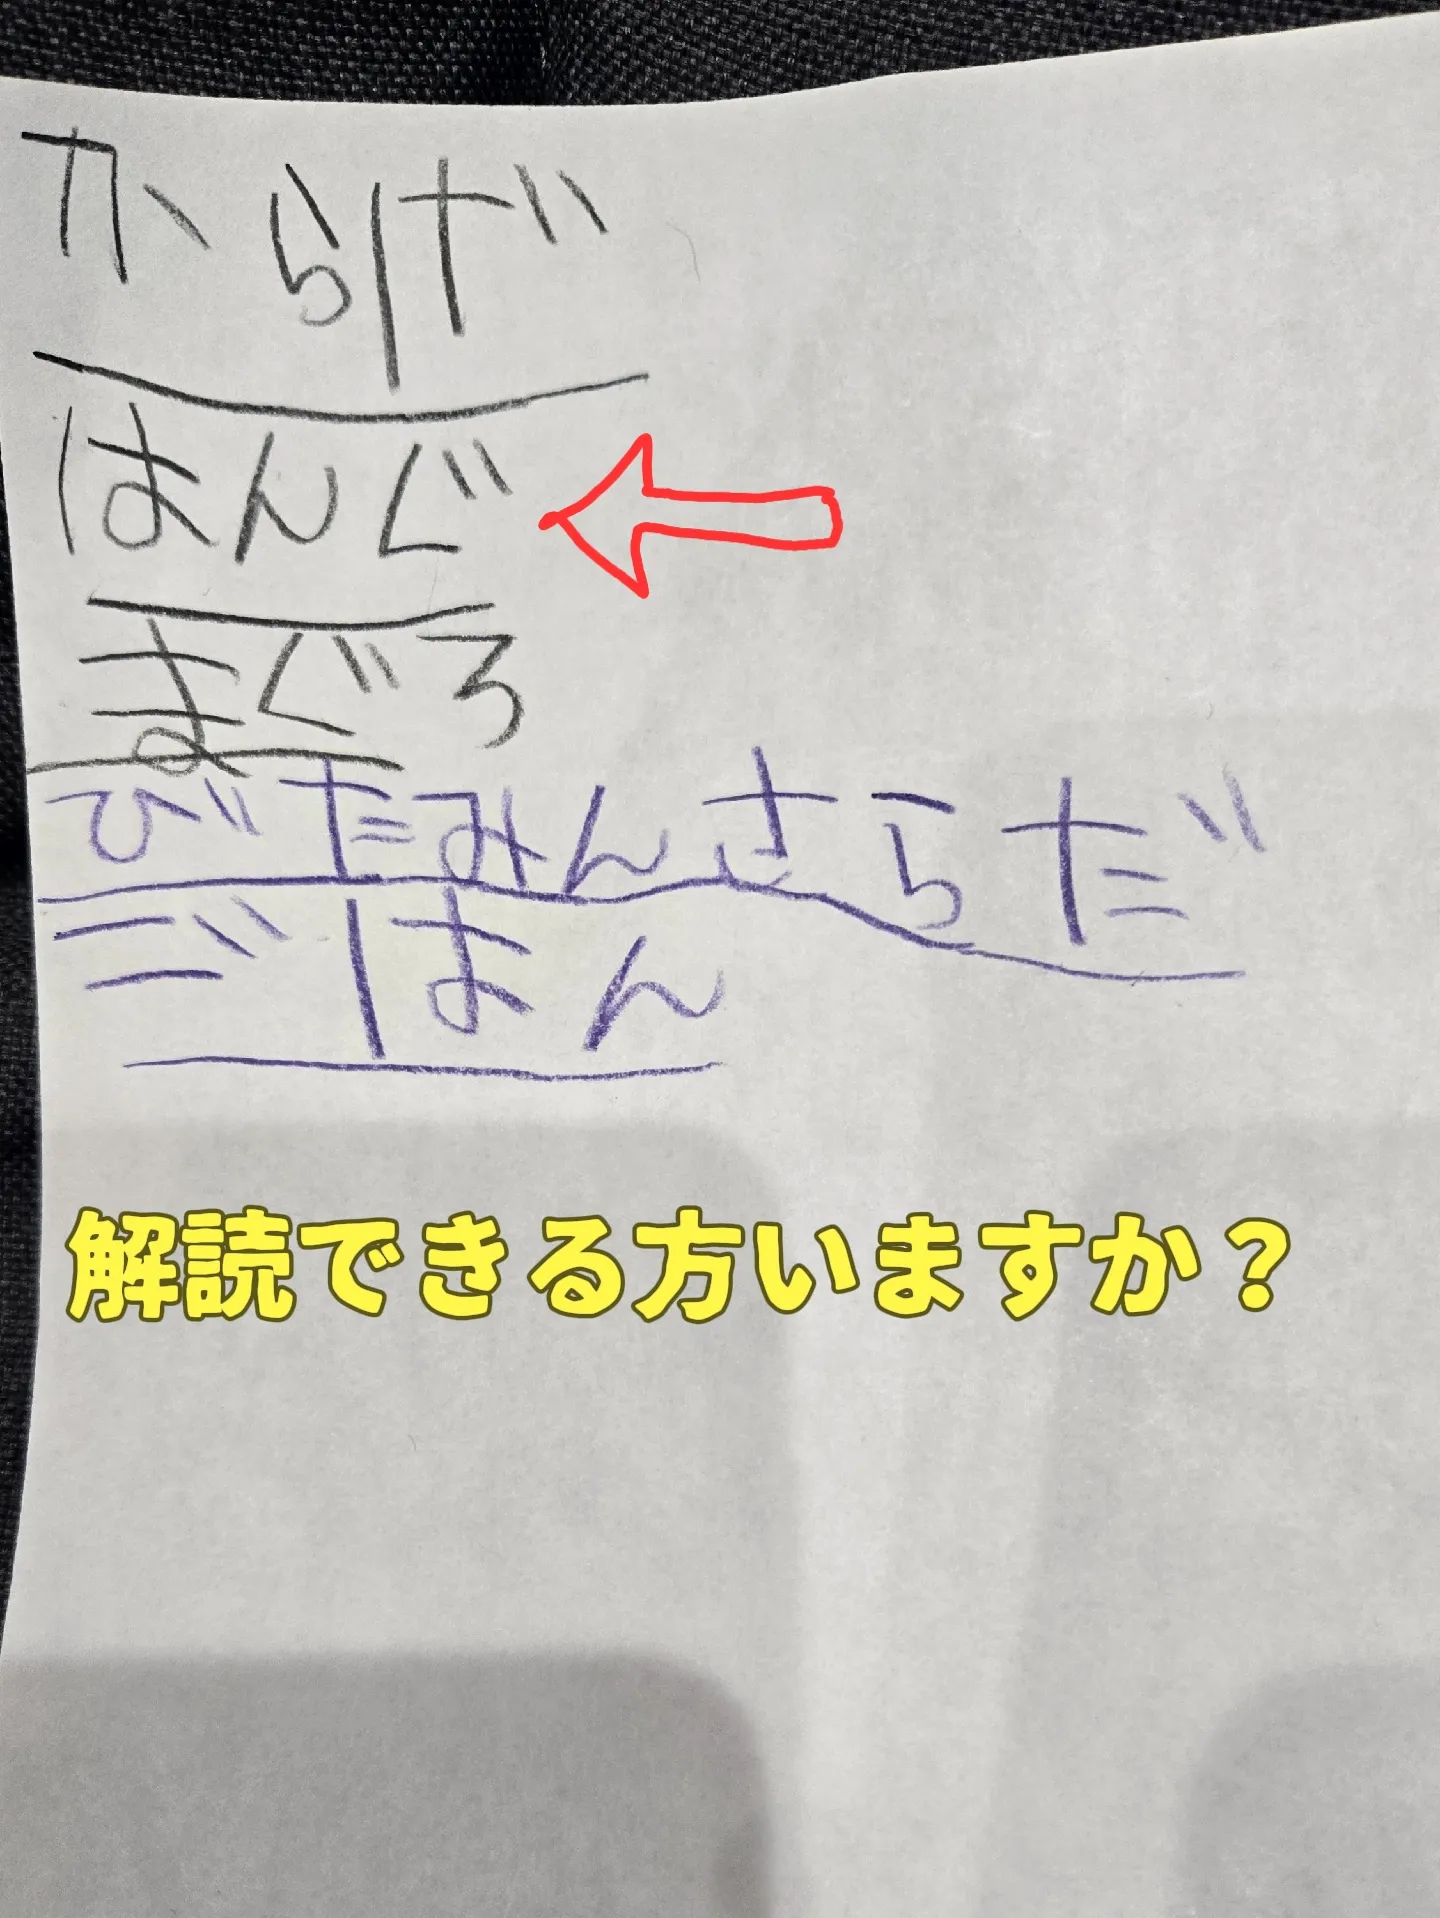 からげ
はんぐ
まぐろ
びたみんさらだ
ごはん
解読できる方いますか？